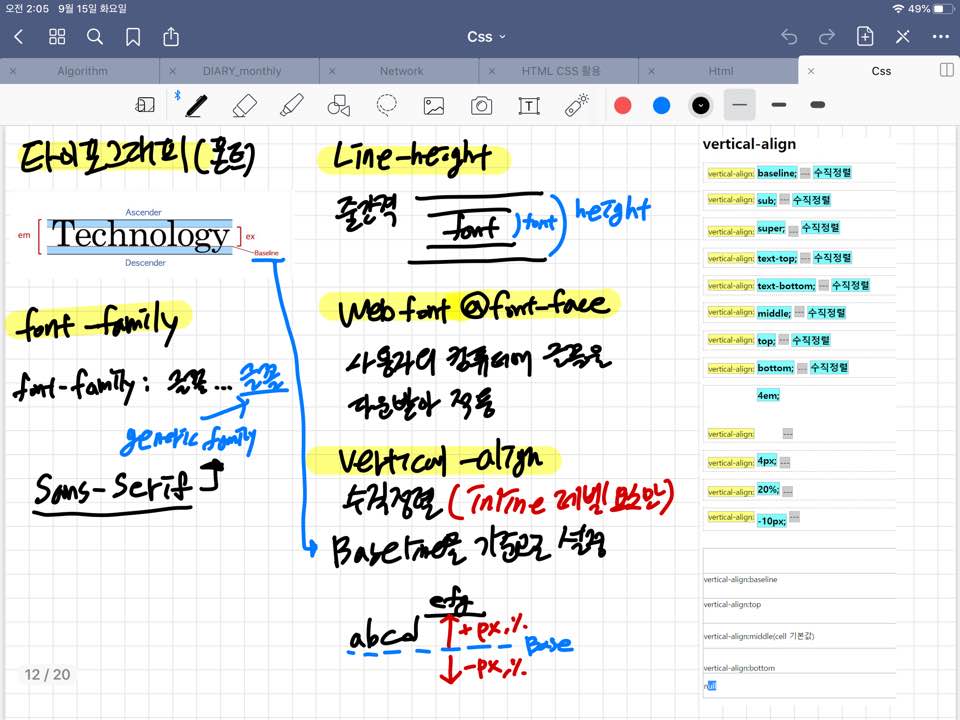 오전 2:05 9월 15일 화요일
49%
Css
Algorithm
DIARY_monthly
Network
HTML CSS 활용
Html
Css
타이포그래피(폰트)
Ascender
em
Technology
ex
Baseline
Descender
font-family
font-family: 글꼴 ... 글꼴
generic family
Sans-Serif
Line-height
줄간격
font
font
height
Web font @font-face
사용자의 컴퓨터에 글꼴을
다운받아 적용
vertical-align
수직정렬 (inline 레벨 요소만)
Baseline을 기준으로 설정
efg
abcd
+px,%
Base
-px,%
12 / 20
vertical-align
vertical-align: baseline; --- 수직정렬
vertical-align: sub; --- 수직정렬
vertical-align: super; --- 수직정렬
vertical-align: text-top; --- 수직정렬
vertical-align: text-bottom; --- 수직정렬
vertical-align: middle; --- 수직정렬
vertical-align: top; --- 수직정렬
vertical-align: bottom; --- 수직정렬
4em;
vertical-align: ---
vertical-align: 4px; ---
vertical-align: 20%; ---
vertical-align: -10px; ---
vertical-align:baseline
vertical-align:top
vertical-align:middle(cell 기본값)
vertical-align:bottom
null